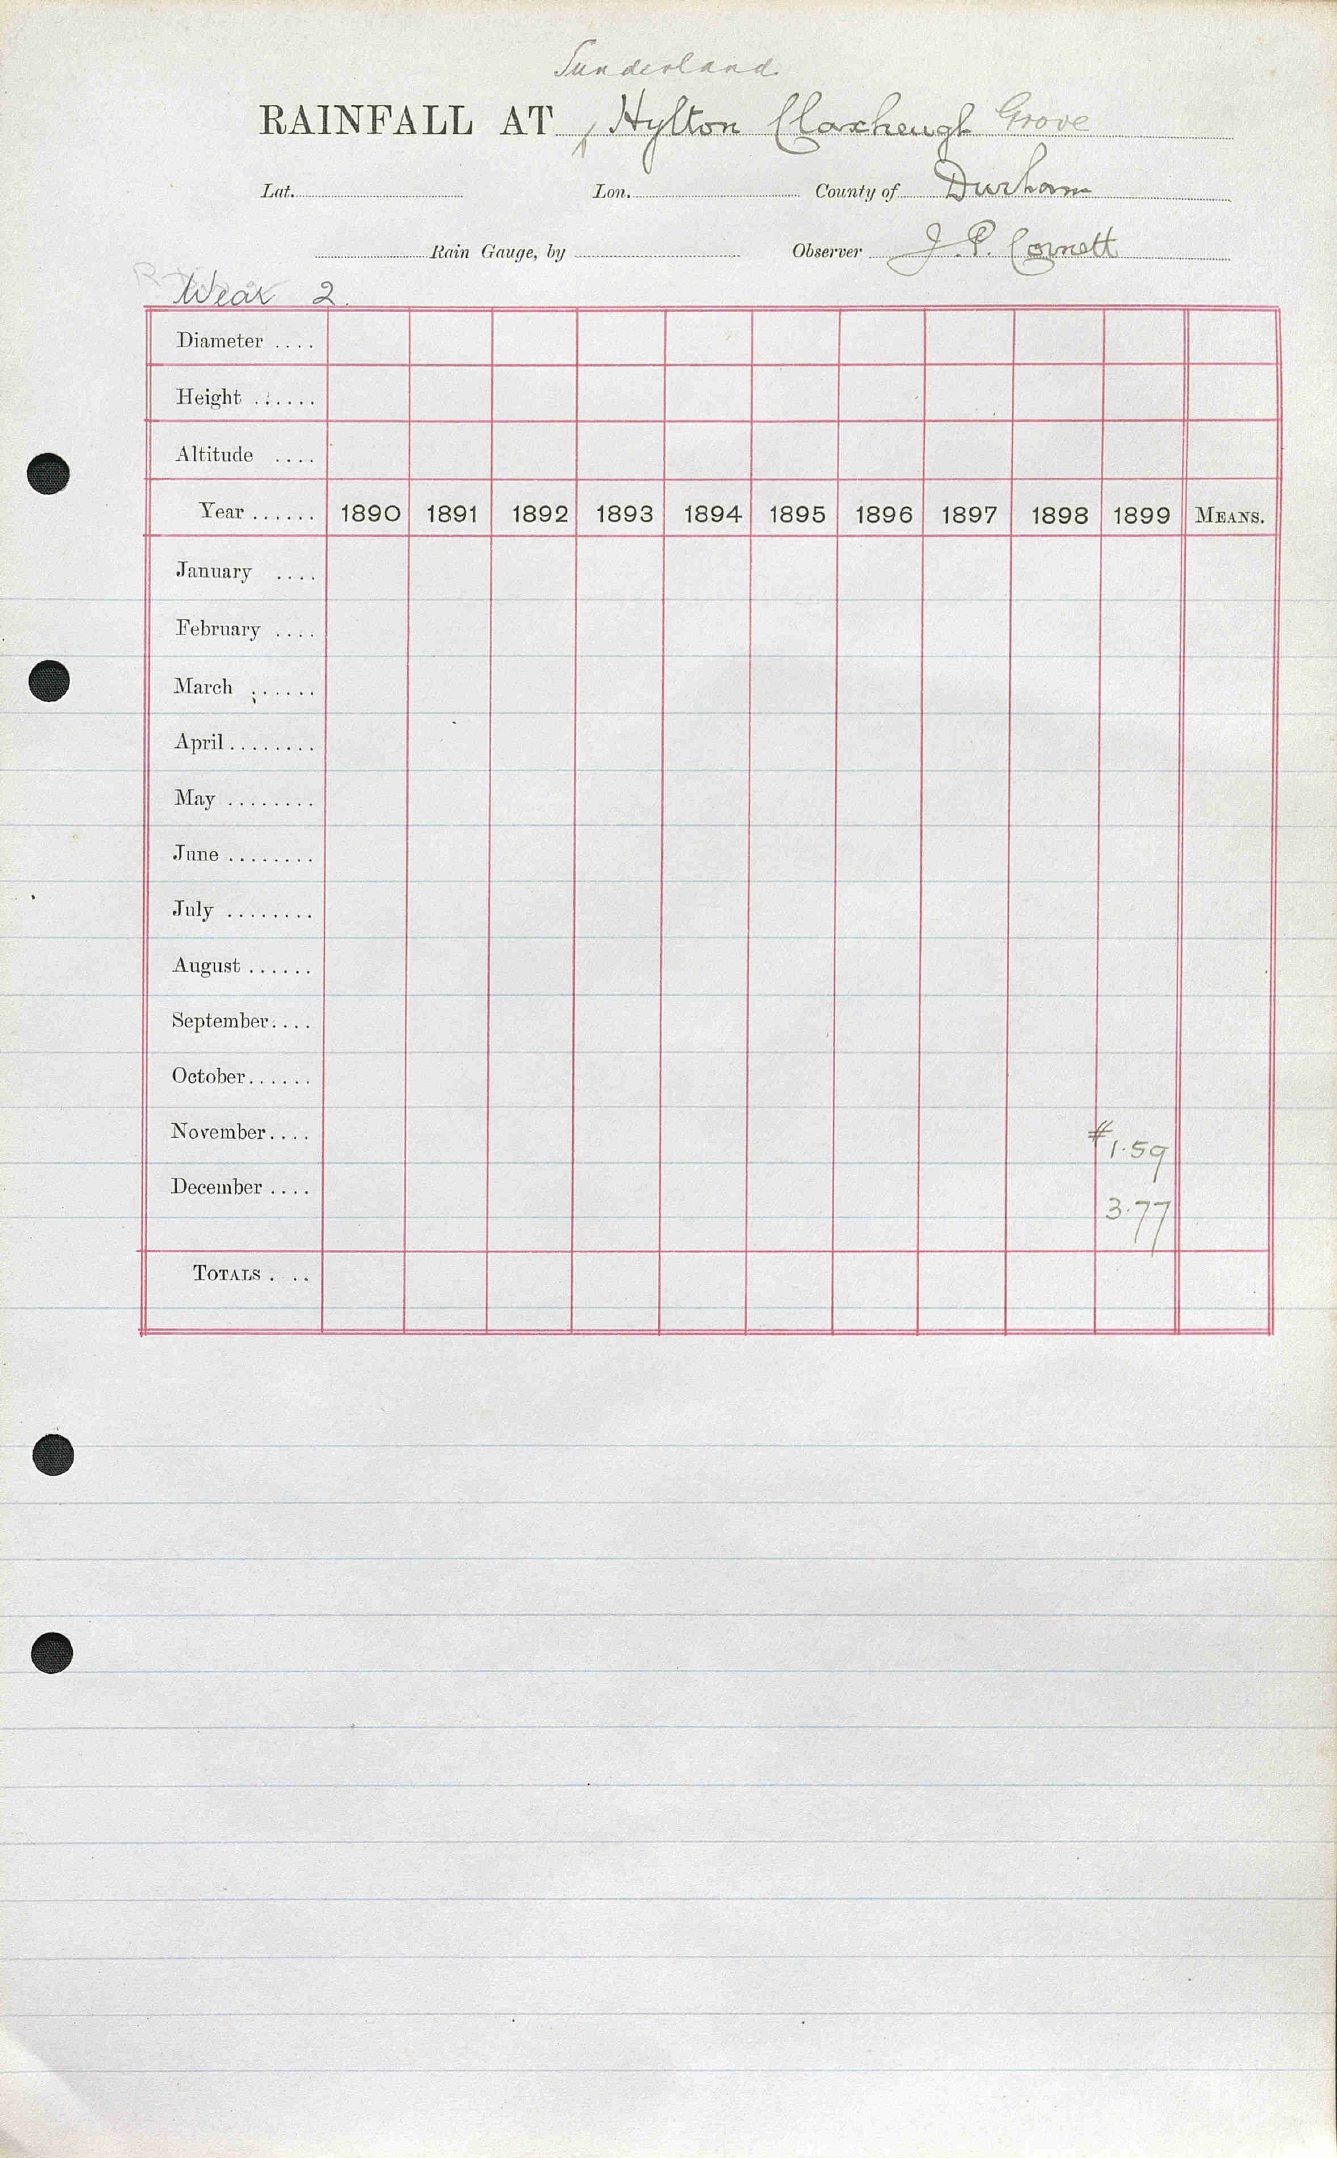 Sunderland
RAINFALL AT Hylton Claxheugh Grove
Lat. Lon. County of Durham
Rain Gauge, by Observer J. P. Cornett
Wear 2.
Diameter ....
Height ......
Altitude ....
Year ...... 1890 1891 1892 1893 1894 1895 1896 1897 1898 1899 MEANS.
January ....
February ....
March ......
April ........
May ........
June ........
July ........
August ......
September ....
October ......
November .... # 1.59
December .... 3.77
TOTALS . ..